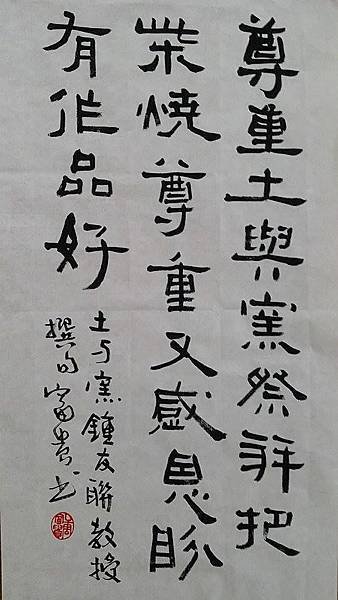 尊重土與窯祭拜把
柴燒尊重又感恩盼
有作品好
土与窯鍾友聯教授
撰句富貴书